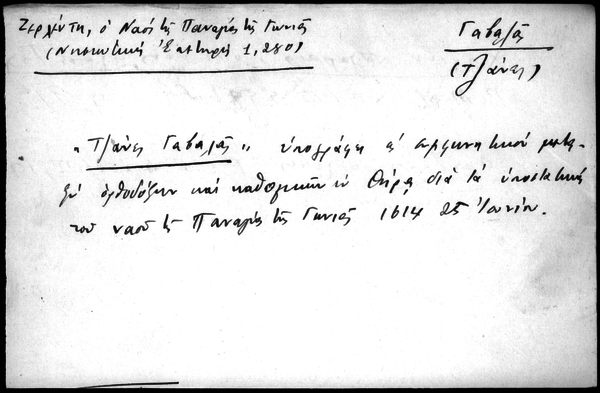 Ζερλέντη, ὁ Ναὸς τῆς Παναγίας τῆς Γωνιᾶς
(Νησιωτικὴ Ἐπετηρὶς 1, 280)
Γαβαλᾶς
(Τζάνες)
"Τζάνες Γαβαλᾶς" ὑπογράφει εἰς συμφωνητικὸν μετα-
ξὺ ὀρθοδόξων καὶ καθολικῶν ἐν Θήρᾳ διὰ τὰ
τοῦ ναοῦ τῆς Παναγίας τῆς Γωνιᾶς 1614 25 Ἰουνίου.